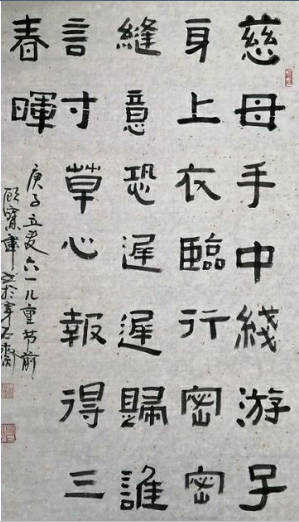 慈母手中綫游子
身上衣臨行密密
縫意恐遲遲歸誰
言寸草心報得三
春暉
庚子夏六一儿童节前